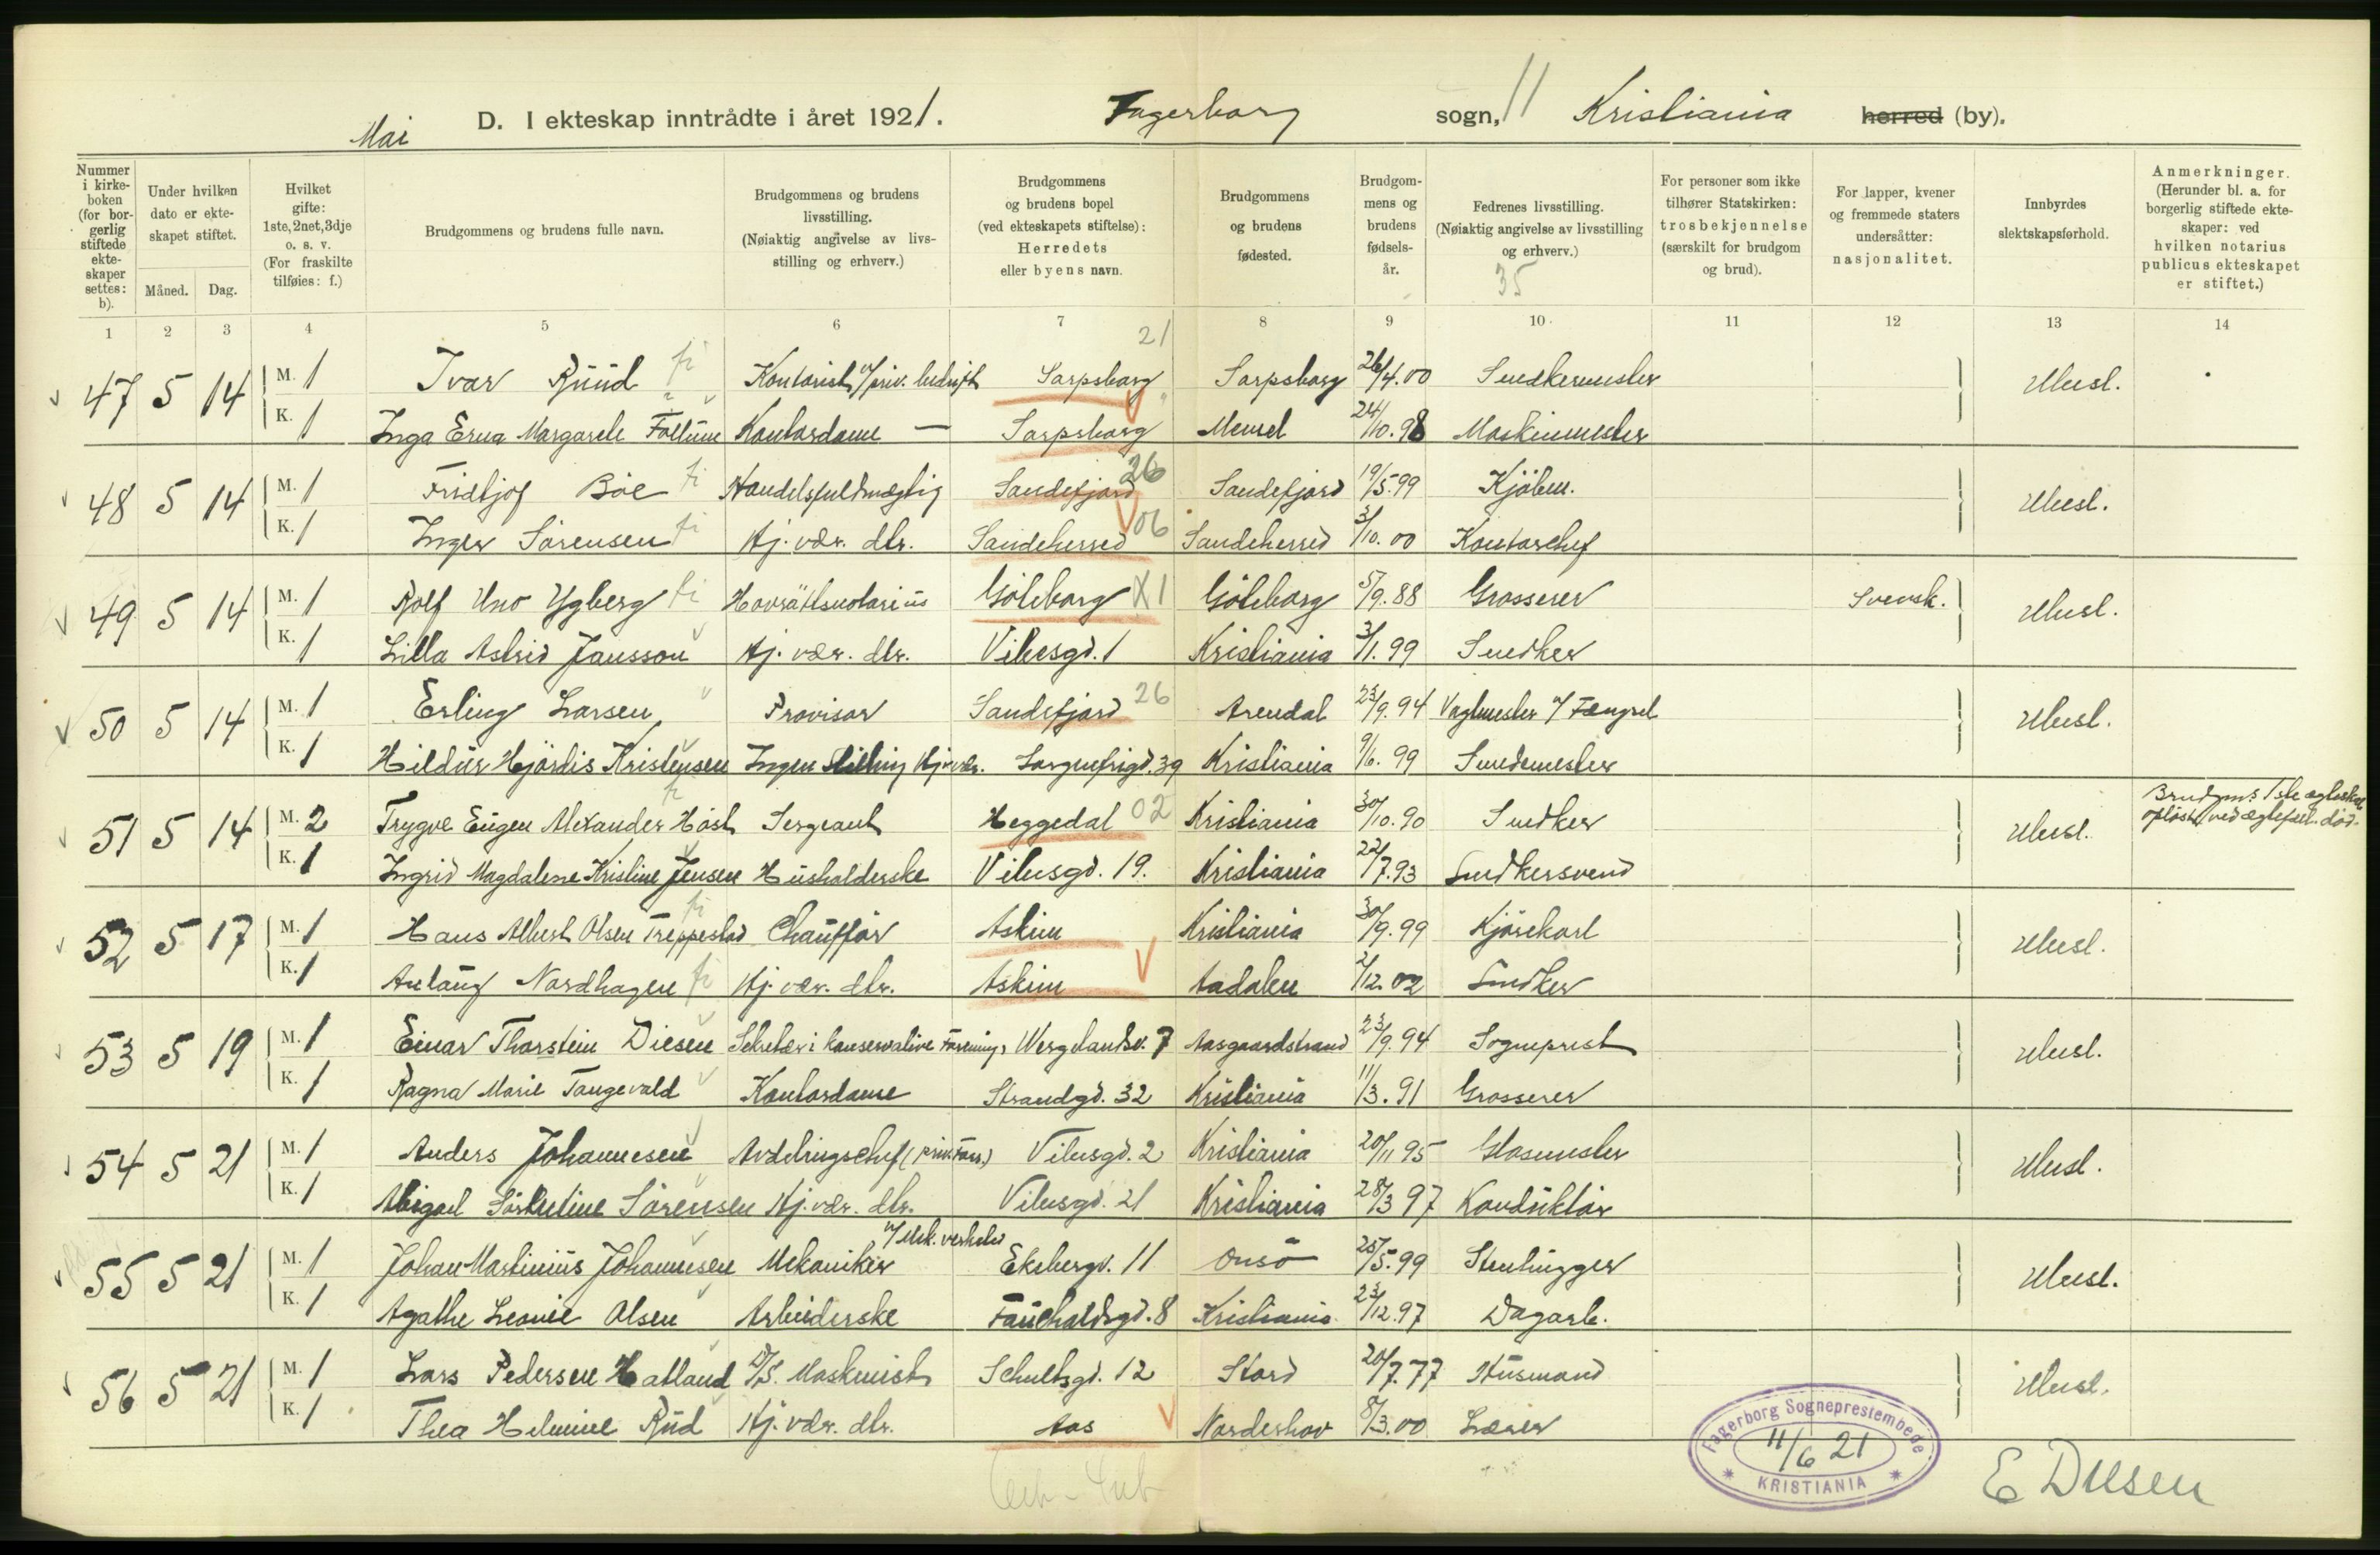 Mai
D. I ekteskap inntrådte i året 1921. Fagerborg sogn, 11 Kristiania herred (by).
Nummer i kirke-boken (for bor-gerlig stiftede ekte-skaper settes: b).
Under hvilken dato er ekte-skapet stiftet.
Måned. Dag.
Hvilket gifte: 1ste, 2net, 3dje o. s. v. (For fraskilte tilføies: f.)
Brudgommens og brudens fulle navn.
Brudgommens og brudens livsstilling. (Nøiaktig angivelse av livs-stilling og erhverv.)
Brudgommens og brudens bopel (ved ekteskapets stiftelse): Herredets eller byens navn.
Brudgommens og brudens fødested.
Brudgom-mens og brudens fødsels-år.
Fedrenes livsstilling. (Nøiaktig angivelse av livsstilling og erhverv.)
35
For personer som ikke tilhører Statskirken: trosbekjennelse (særskilt for brudgom og brud).
For lapper, kvener og fremmede staters undersåtter: nasjonalitet.
Innbyrdes slektskapsforhold.
Anmerkninger. (Herunder bl. a. for borgerlig stiftede ekte-skaper: ved hvilken notarius publicus ekteskapet er stiftet.)
1 2 3 4 5 6 7 8 9 10 11 12 13 14
21
47 5 14 M. 1 Ivar Ruud Kontorist v/priv. bedrift Sarpsborg Sarpsborg 26/4.00 Snedkermester Ubesl.
K. 1 Inga Erna Margarete Follum Kontordame — Sarpsborg Memel 24/10.98 Maskinmester
48 5 14 M. 1 Fridtjof Böe Handelsfuldmægtig Sandefjord 26 Sandefjord 19/5.99 Kjöbm. Ubesl.
K. 1 Inger Sörensen Hj. vær. dtr. Sandeherred 06 Sandeherred 3/10.00 Kontorchef
49 5 14 M. 1 Rolf Uno Ygberg Hovrättsnotarius Göteborg X1 Göteborg 5/9.88 Grosserer Svensk. Ubesl.
K. 1 Lilla Astrid Jansson Hj. vær. dtr. Vibesgd. 1 Kristiania 3/1.99 Snedker
50 5 14 M. 1 Erling Larsen Provisor Sandefjord 26 Arendal 23/9.94 Vagtmester v/ Fængsel Ubesl.
K. 1 Hildur Hjördis Kristensen Ingen stilling Hj. vær. Sorgenfrigd. 39 Kristiania 9/6.99 Smedemester
51 5 14 M. 2 Trygve Eugen Alexander Höst Sergeant Heggedal 02 Kristiania 30/10.90 Snedker Ubesl. Brudgms 1ste egteskap opløst ved egtefell. død.
K. 1 Ingrid Magdalene Kristine Jensen Husholderske Vibesgd. 19. Kristiania 22/7.93 Snedkersvend
52 5 17 M. 1 Hans Albert Olsen Treppestad Chaufför Askim Kristiania 30/9.99 Kjörekarl Ubesl.
K. 1 Nordhagen Hj. vær. dtr. Askim Aadalen 2/12.02 Snedker
53 5 19 M. 1 Einar Thorstein Diesen Sekretær i konservative Forening, Wergelandsv. 7 Aasgaardstrand 23/9.94 Sogneprest Ubesl.
K. 1 Ragna Marie Tangevald Kontordame Strandgd. 32 Kristiania 11/3.91 Grosserer
54 5 21 M. 1 Anders Johannesen Avdelingschef (priv. forr.) Vibesgd. 2 Kristiania 20/11 95 Glasmester Ubesl.
K. 1 Abigael Sörensen Hj. vær. dtr. Vibesgd. 21 Kristiania 28/3 97 Konduktör
55 5 21 M. 1 Johan Martinius Johannesen Mekaniker v/ Mek. verksted Ekebergv. 11 Onsö 25/5.99 Stenhugger Ubesl.
K. 1 Agathe Leonie Olsen Arbeiderske Fauchaldsgd. 8 Kristiania 23/12.97 Dagarb.
56 5 21 M. 1 Lars Pedersen Hatland D/S. Maskinist Schultsgd. 12 Stord 20/7.77 Husmand Ubesl.
K. 1 Thea Helmine Rud Hj. vær. dtr. Aas Norderhov 8/3.00 Lærer
Fagerborg Sogneprestembede
11/6 21
KRISTIANIA
E Diesen